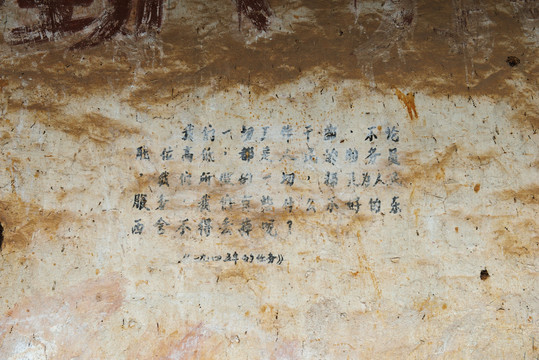 我们一切工作干部，不论
职位高低，都是人民的勤务员
，我们所做的一切，都是为人民
服务，我们有些什么不好的东
西舍不得丢掉呢？
《一九四五年的任务》